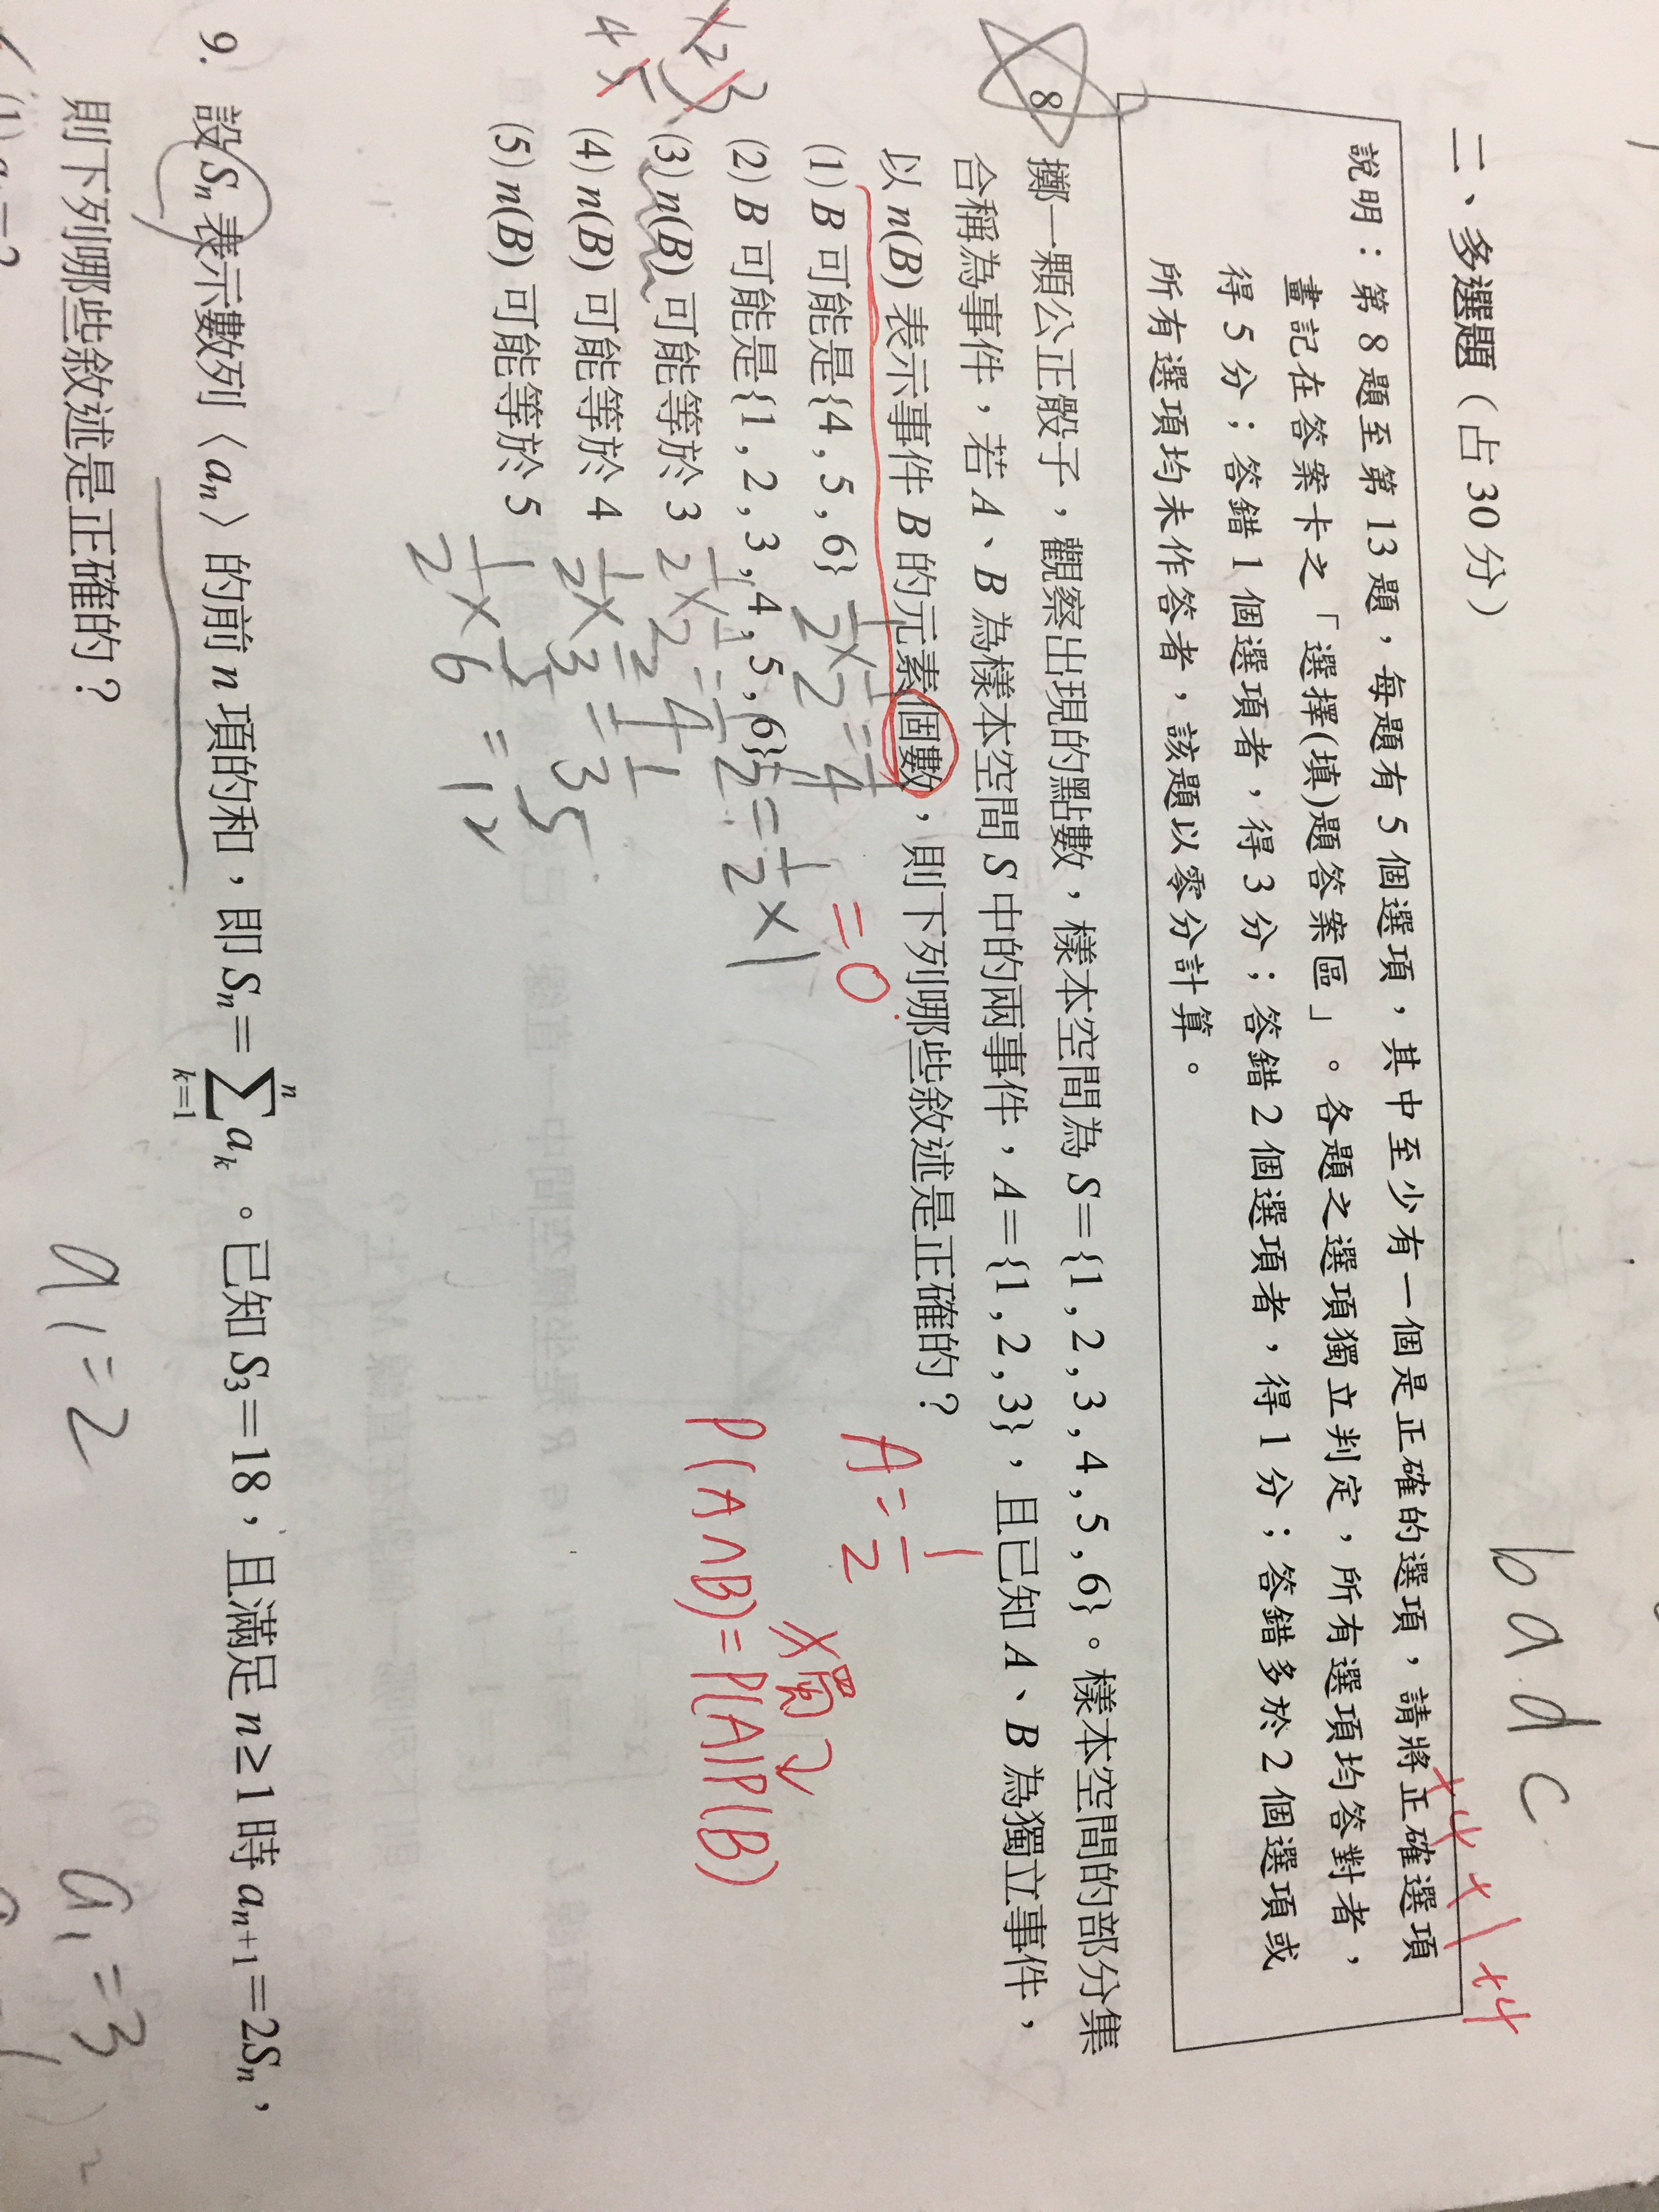 b a d c
二、多選題(占30分)
說明:第8題至第13題,每題有5個選項,其中至少有一個是正確的選項,請將正確選項
畫記在答案卡之「選擇(填)題答案區」。各題之選項獨立判定,所有選項均答對者,
得5分;答錯1個選項者,得3分;答錯2個選項者,得1分;答錯多於2個選項或
所有選項均未作答者,該題以零分計算。
8
擲一顆公正骰子,觀察出現的點數,樣本空間為S={1,2,3,4,5,6}。樣本空間的部分集
合稱為事件,若A、B為樣本空間S中的兩事件,A={1,2,3},且已知A、B為獨立事件,
以n(B)表示事件B的元素個數,則下列哪些敘述是正確的?
A=1/2
(1) B可能是{4,5,6} 1/2×1/2=1/4 =0
(2) B可能是{1,2,3,4,5,6} 1/2=1/2×1
P(A∩B)=P(A)P(B)
(3) n(B)可能等於3 1/2×1/2=1/4
(4) n(B)可能等於4 1/2×2/3=1/3
(5) n(B)可能等於5 1/2×5/6=5/12
9. 設Sn表示數列〈an〉的前n項的和,即Sn=∑k=1n ak。已知S3=18,且滿足n≥1時an+1=2Sn,
則下列哪些敘述是正確的?
a1=2 a1=3